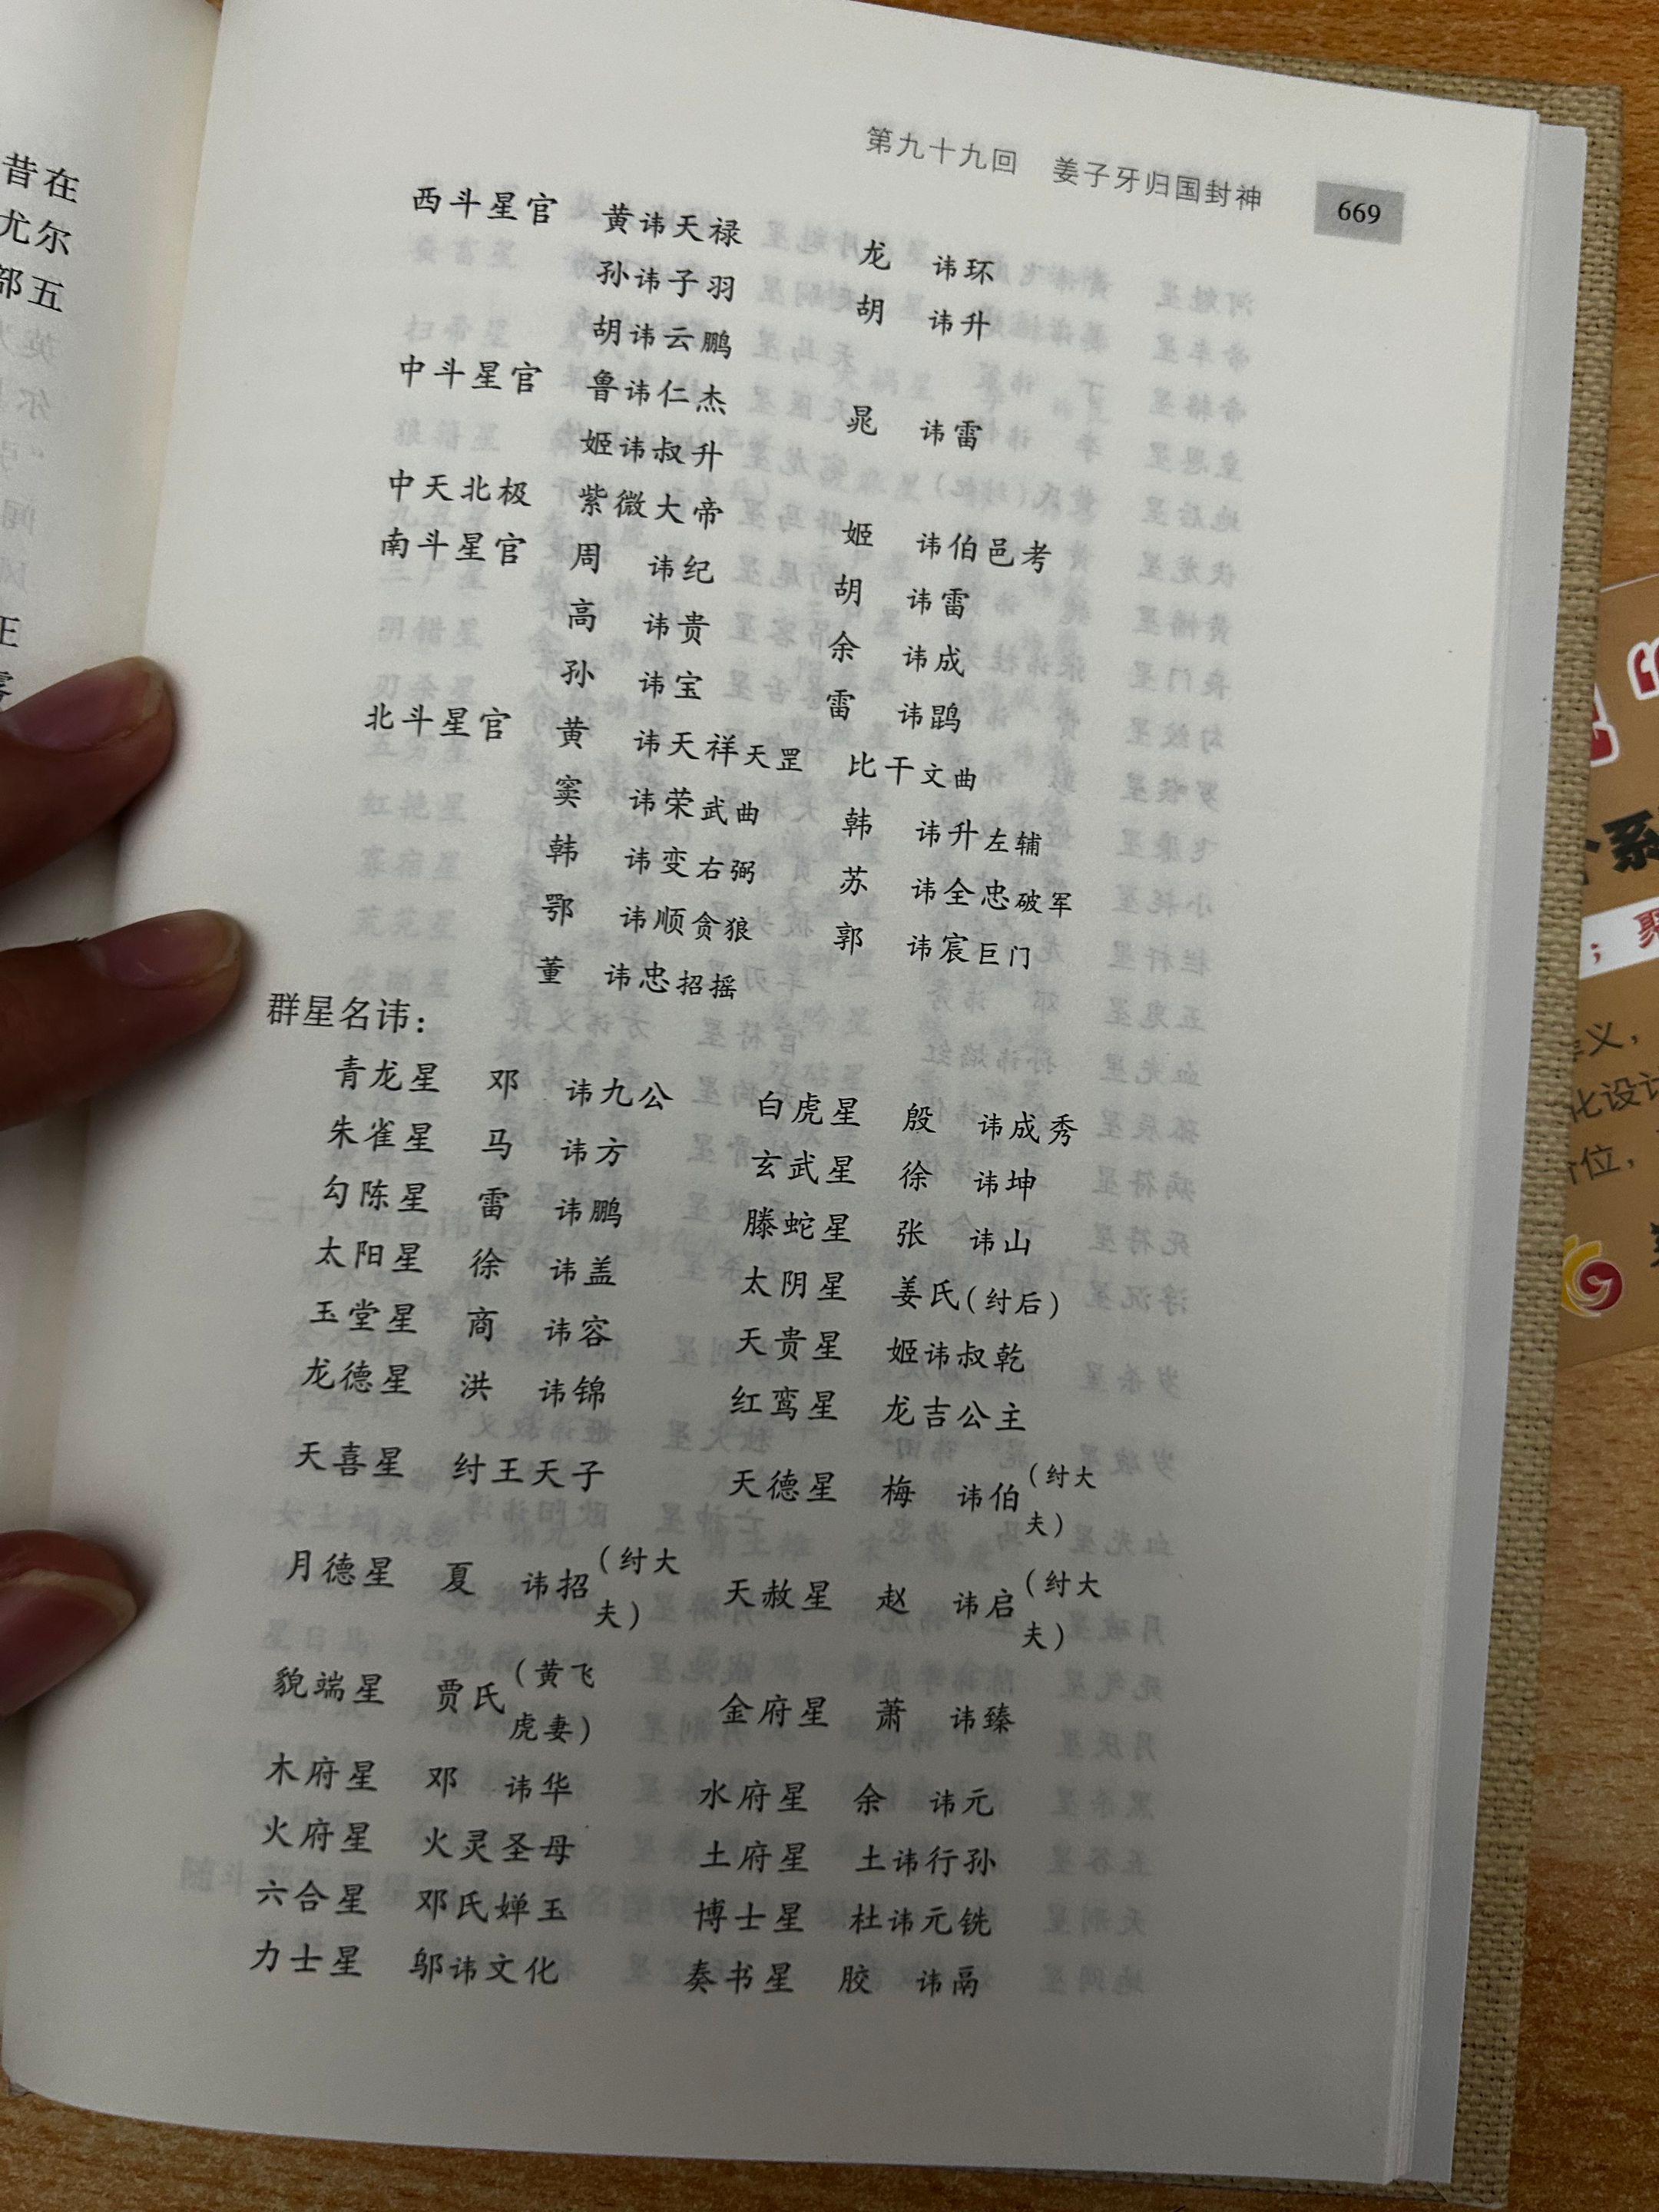 第九十九回 姜子牙归国封神 669
西斗星官 黄讳天禄 龙 讳环
孙讳子羽 胡 讳升
胡讳云鹏
中斗星官 鲁讳仁杰 晁 讳雷
姬讳叔升
中天北极 紫微大帝 姬 讳伯邑考
南斗星官 周 讳纪 胡 讳雷
高 讳贵 余 讳成
孙 讳宝 雷 讳鹍
北斗星官 黄 讳天祥天罡 比干文曲
窦 讳荣武曲 韩 讳升左辅
韩 讳变右弼 苏 讳全忠破军
鄂 讳顺贪狼 郭 讳宸巨门
董 讳忠招摇
群星名讳：
青龙星 邓 讳九公 白虎星 殷 讳成秀
朱雀星 马 讳方 玄武星 徐 讳坤
勾陈星 雷 讳鹏 滕蛇星 张 讳山
太阳星 徐 讳盖 太阴星 姜氏(纣后)
玉堂星 商 讳容 天贵星 姬讳叔乾
龙德星 洪 讳锦 红鸾星 龙吉公主
天喜星 纣王天子 天德星 梅 讳伯(纣大
夫)
月德星 夏 讳招(纣大
夫) 天赦星 赵 讳启(纣大
夫)
貌端星 贾氏(黄飞
虎妻) 金府星 萧 讳臻
木府星 邓 讳华 水府星 余 讳元
火府星 火灵圣母 土府星 土讳行孙
六合星 邓氏婵玉 博士星 杜讳元铣
力士星 邬讳文化 奏书星 胶 讳鬲
昔在
尤尔
部五